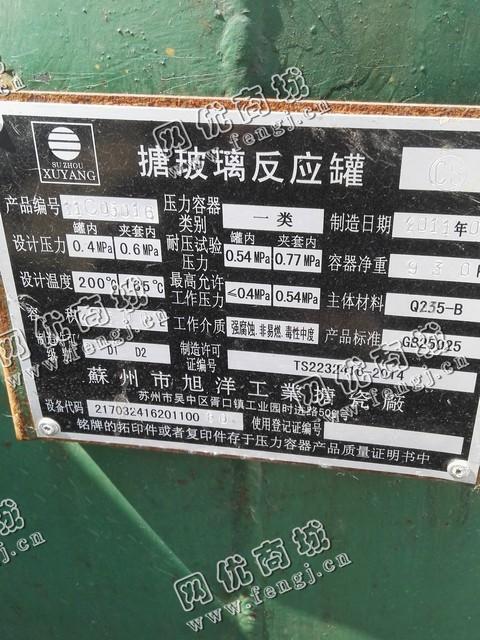 SUZHOU
XUYANG
搪玻璃反应罐
产品编号 11C05016 压力容器类别 一类 制造日期 2011年
罐内 夹套内 罐内 夹套内
设计压力 0.4MPa 0.6MPa 耐压试验压力 0.54MPa 0.77MPa 容器净重 930
设计温度 200℃ 165℃ 最高允许工作压力 ≤0.4MPa 0.54MPa 主体材料 Q235-B
容 积 工作介质 强腐蚀.非易燃.毒性中度 产品标准 GB25025
制造许可级别 D1 D2 制造许可证编号 TS2232410-2014
蘇州市旭洋工業搪瓷廠
苏州市吴中区胥口镇工业园时进路509
设备代码 217032416201100 使用登记证编号
铭牌的拓印件或者复印件存于压力容器产品质量证明书中
网优商城
www.fengj.cn
网优商城
www.fengj.cn
网优商城
www.fengj.cn
网优商城
www.fengj.cn